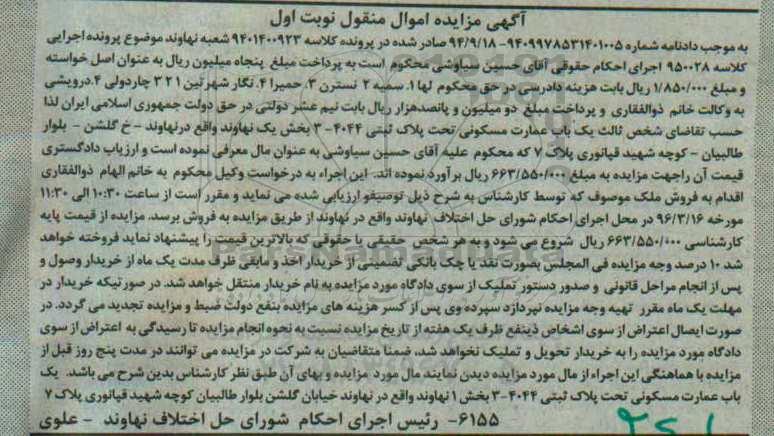 آگهی مزایده اموال منقول نوبت اول
به موجب دادنامه شماره ۹۴۰۹۹۷۸۵۳۱۴۰۱۰۰۵-۹۴/۹/۱۸ صادر شده در پرونده کلاسه ۹۴۰۱۴۰۰۹۲۳ شعبه نهاوند موضوع پرونده اجرایی
کلاسه ۹۵۰۰۲۸ اجرای احکام حقوقی آقای حسین سیاوشی محکوم است به پرداخت مبلغ پنجاه میلیون ریال به عنوان اصل خواسته
و مبلغ ۱/۸۵۰/۰۰۰ ریال بابت هزینه دادرسی در حق محکوم لها ۱. سمیه ۲. نسترن ۳. حمیرا ۴. نگار شهرتین ۱ ۲ ۳ چاردولی ۴. درویشی
به وکالت خانم ذوالفقاری و پرداخت مبلغ دو میلیون و پانصدهزار ریال بابت نیم عشر دولتی در حق دولت جمهوری اسلامی ایران لذا
حسب تقاضای شخص ثالث یک باب عمارت مسکونی تحت پلاک ثبتی ۴۰۴۴-۳ بخش یک نهاوند واقع درنهاوند - خ گلشن - بلوار
طالبیان - کوچه شهید قیانوری پلاک ۷ که محکوم علیه آقای حسین سیاوشی به عنوان مال معرفی نموده است و ارزیاب دادگستری
قیمت آن راجهت مزایده به مبلغ ۶۶۳/۵۵۰/۰۰۰ ریال برآورد نموده اند. این اجراء به درخواست وکیل محکوم به خانم الهام ذوالفقاری
اقدام به فروش ملک موصوف که توسط کارشناس به شرح ذیل توصیفو ارزیابی شده می نماید و مقرر است از ساعت ۱۰:۳۰ الی ۱۱:۳۰
مورخه ۹۶/۳/۱۶ در محل اجرای احکام شورای حل اختلاف نهاوند واقع در نهاوند از طریق مزایده به فروش برسد. مزایده از قیمت پایه
کارشناسی ۶۶۳/۵۵۰/۰۰۰ ریال شروع می شود و به هر شخص حقیقی یا حقوقی که بالاترین قیمت را پیشنهاد نماید فروخته خواهد
شد ۱۰ درصد وجه مزایده فی المجلس بصورت نقد یا چک بانکی تضمینی از خریدار اخذ و مابقی ظرف مدت یک ماه از خریدار وصول و
پس از انجام مراحل قانونی و صدور دستور تملیک از سوی دادگاه مورد مزایده به نام خریدار منتقل خواهد شد. در صورتیکه خریدار در
مهلت یک ماه مقرر تهیه وجه مزایده نپردازد سپرده وی پس از کسر هزینه های مزایده بنفع دولت ضبط و مزایده تجدید می گردد. در
صورت ایصال اعتراض از سوی اشخاص ذینفع ظرف یک هفته از تاریخ مزایده نسبت به نحوه انجام مزایده تا رسیدگی به اعتراض از سوی
دادگاه مورد مزایده را به خریدار تحویل و تملیک نخواهد شد، ضمنا متقاضیان به شرکت در مزایده می توانند در مدت پنج روز قبل از
مزایده با هماهنگی این اجراء از مال مورد مزایده دیدن نمایند مال مورد مزایده و بهای آن طبق نظر کارشناس بدین شرح می باشد. یک
باب عمارت مسکونی تحت پلاک ثبتی ۴۰۴۴-۳ بخش ۱ نهاوند واقع در نهاوند خیابان گلشن بلوار طالبیان کوچه شهید قیانوری پلاک ۷
۶۱۵۵- رئیس اجرای احکام شورای حل اختلاف نهاوند - علوی